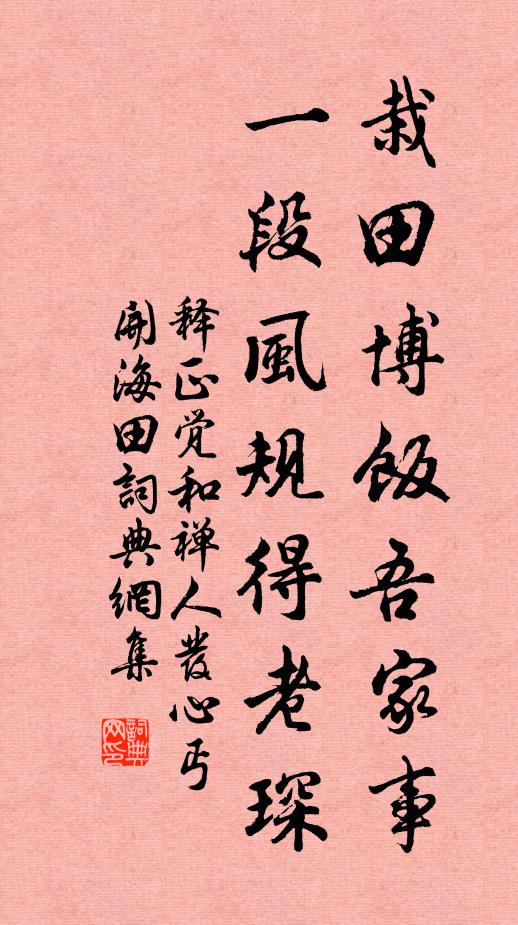 栽田博飯吾家事
一段風規得老琛
释正觉和禅人發心丐
開海田詞典網集
詞典
网印